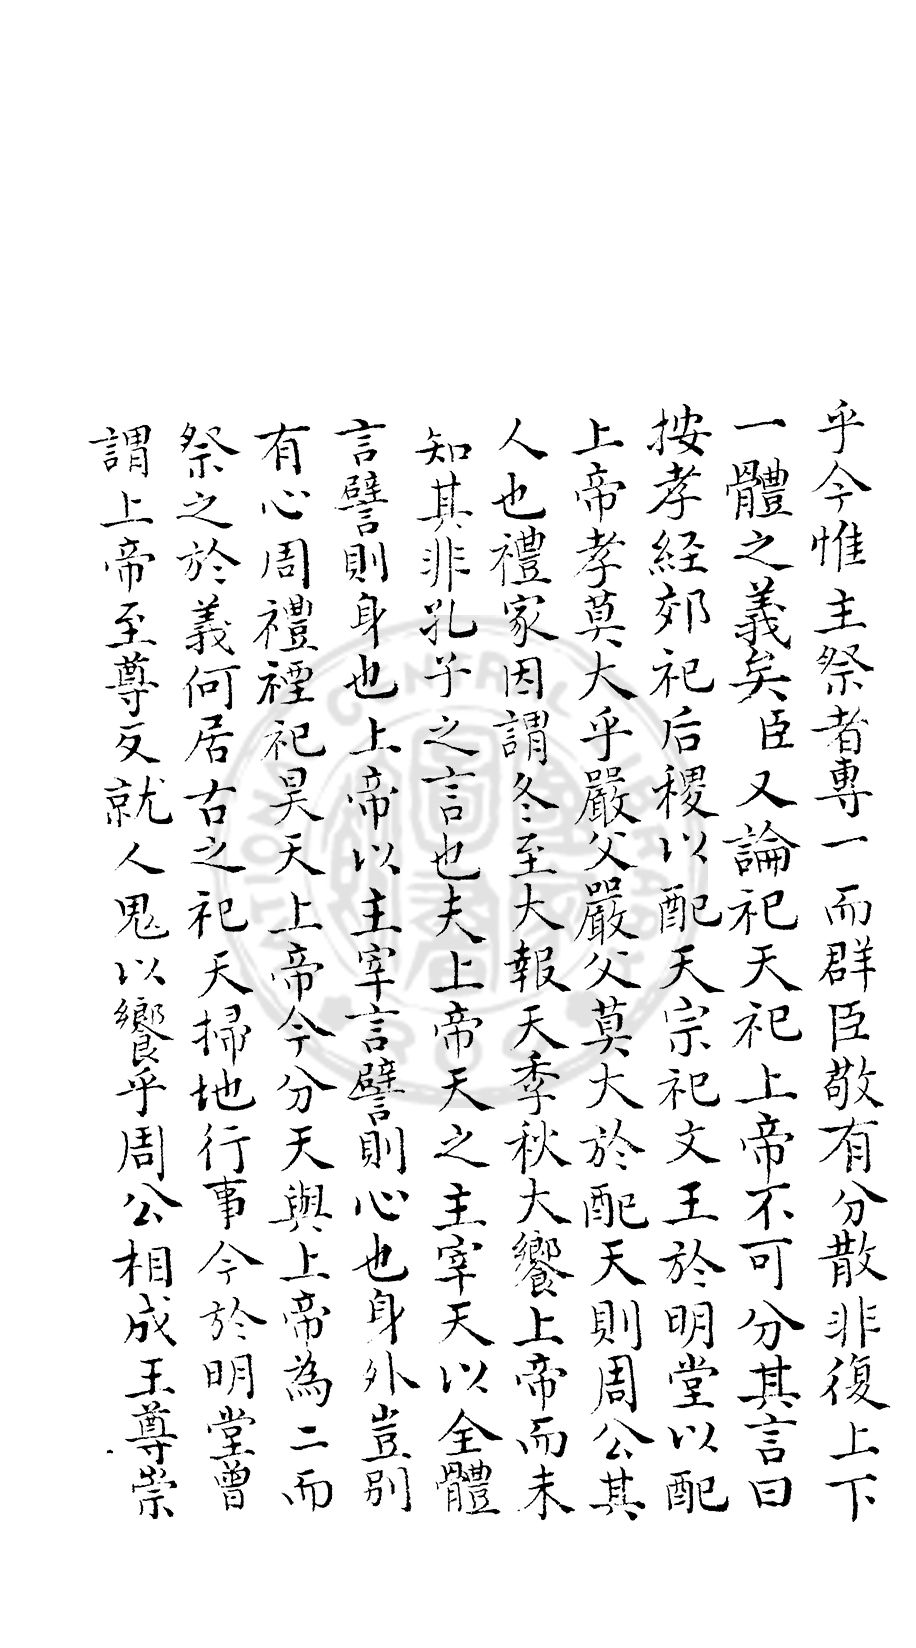 乎今惟主祭者專一而群臣敬有分散非復上下
一體之義矣臣又論祀天祀上帝不可分其言曰
按孝経郊祀后稷以配天宗祀文王於明堂以配
上帝孝莫大乎嚴父嚴父莫大於配天則周公其
人也禮家因謂冬至大報天季秋大饗上帝而未
知其非孔子之言也夫上帝天之主宰天以全體
言譬則身也上帝以主宰言譬則心也身外豈別
有心周禮禋祀昊天上帝今分天與上帝為二而
祭之於義何居古之祀天掃地行事今於明堂曾
謂上帝至尊反就人鬼以饗乎周公相成王尊崇